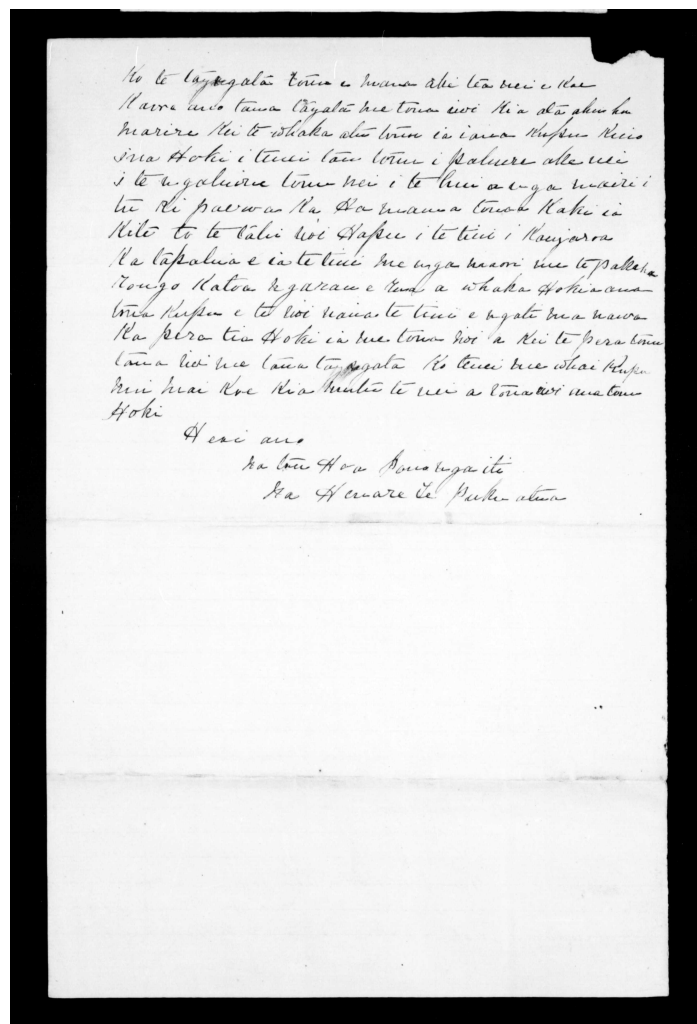 Ko te tangata tonu e mana aki tea nei e Koe
Kaora ano tana tangata me tona iwi Kia ata ahu ka
marire Kei te whaka atu tonu ia i ana Kupu Kino
ina Hoki i tenei tau tonu i pahure ake nei
i te ngahuru tonu nei i te hui a nga maori i
tu ki paewa Ka Ha mama tonoa Kaki ia
Kite to te tahi iwi Hapu i te tini i
Ka tapatua e ia te tini me nga maori me te pakeha
rongo Katoa ngarau e rua a whaka Hokia ana
tona Kupu e te iwi nana te tini e ngati ma nawa
Ka pera tia Hoki ia me tona iwi a Kei te pera tonu
tana iwi me tana tangata Ko tenei me whai Kupu
mu mai Koe Kia mutu te nei a tona iwi ona tonu
Hoki
Heoi ano
na tou Hoa pononga iti
Na Henare Te Pukuatua